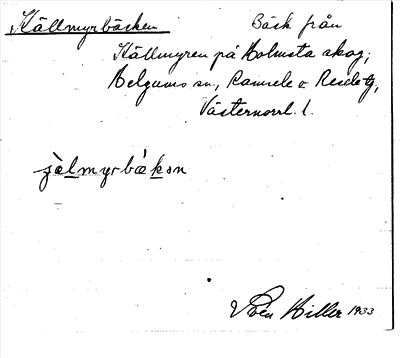 Källmyrbäcken Bäck från
Källmyren på Holmsta skog;
Helgums sn., Ramsele o. Resele tg,
Västernorrl. l.
jèlmyrbäkən
Sven Hiller 1933